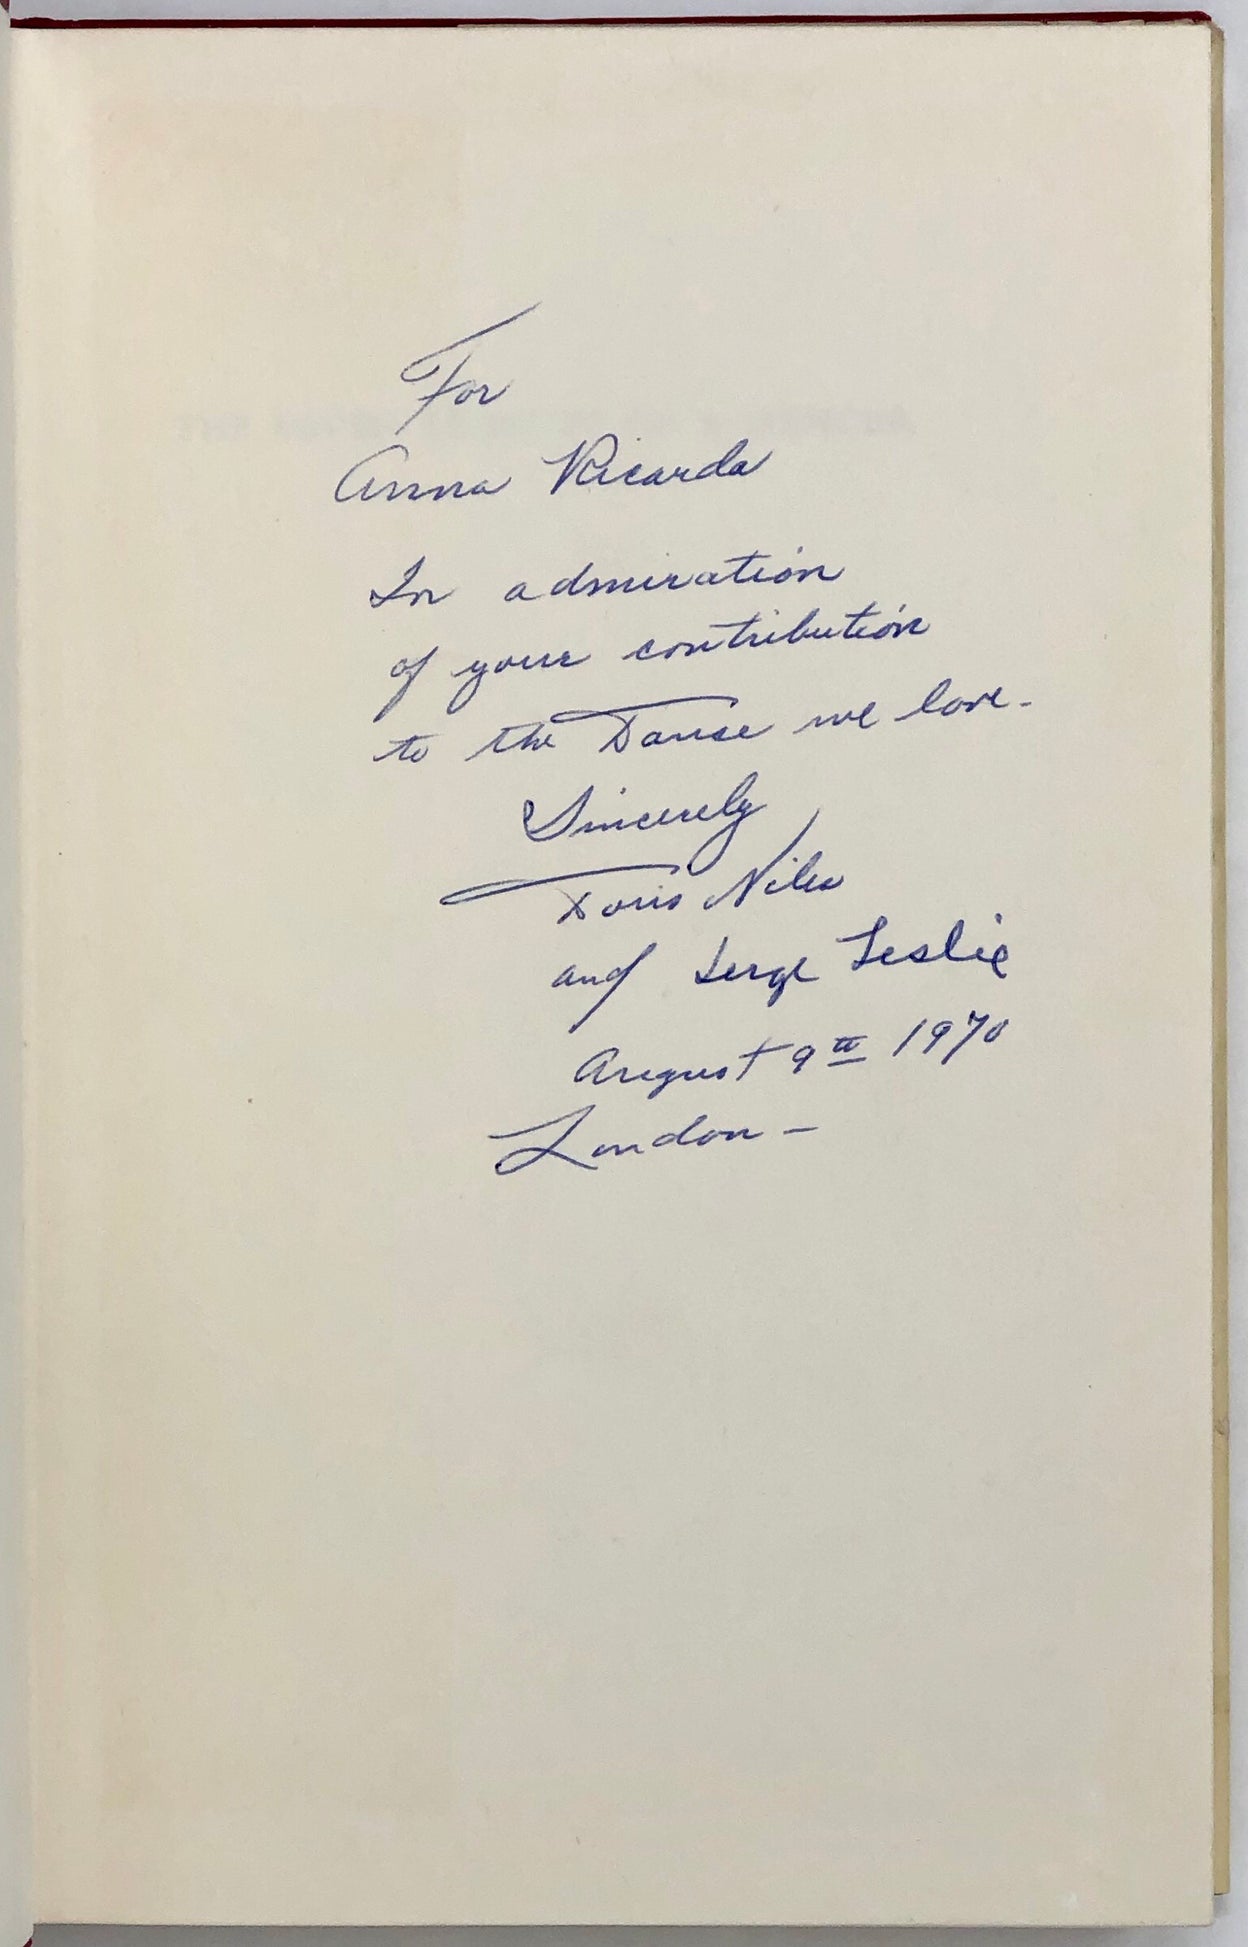 For
Anna Ricarda
In admiration
of your contribution
to the Danse we love.
Sincerely
Doris Niles
and Serge Leslie
August 9th 1970
London —